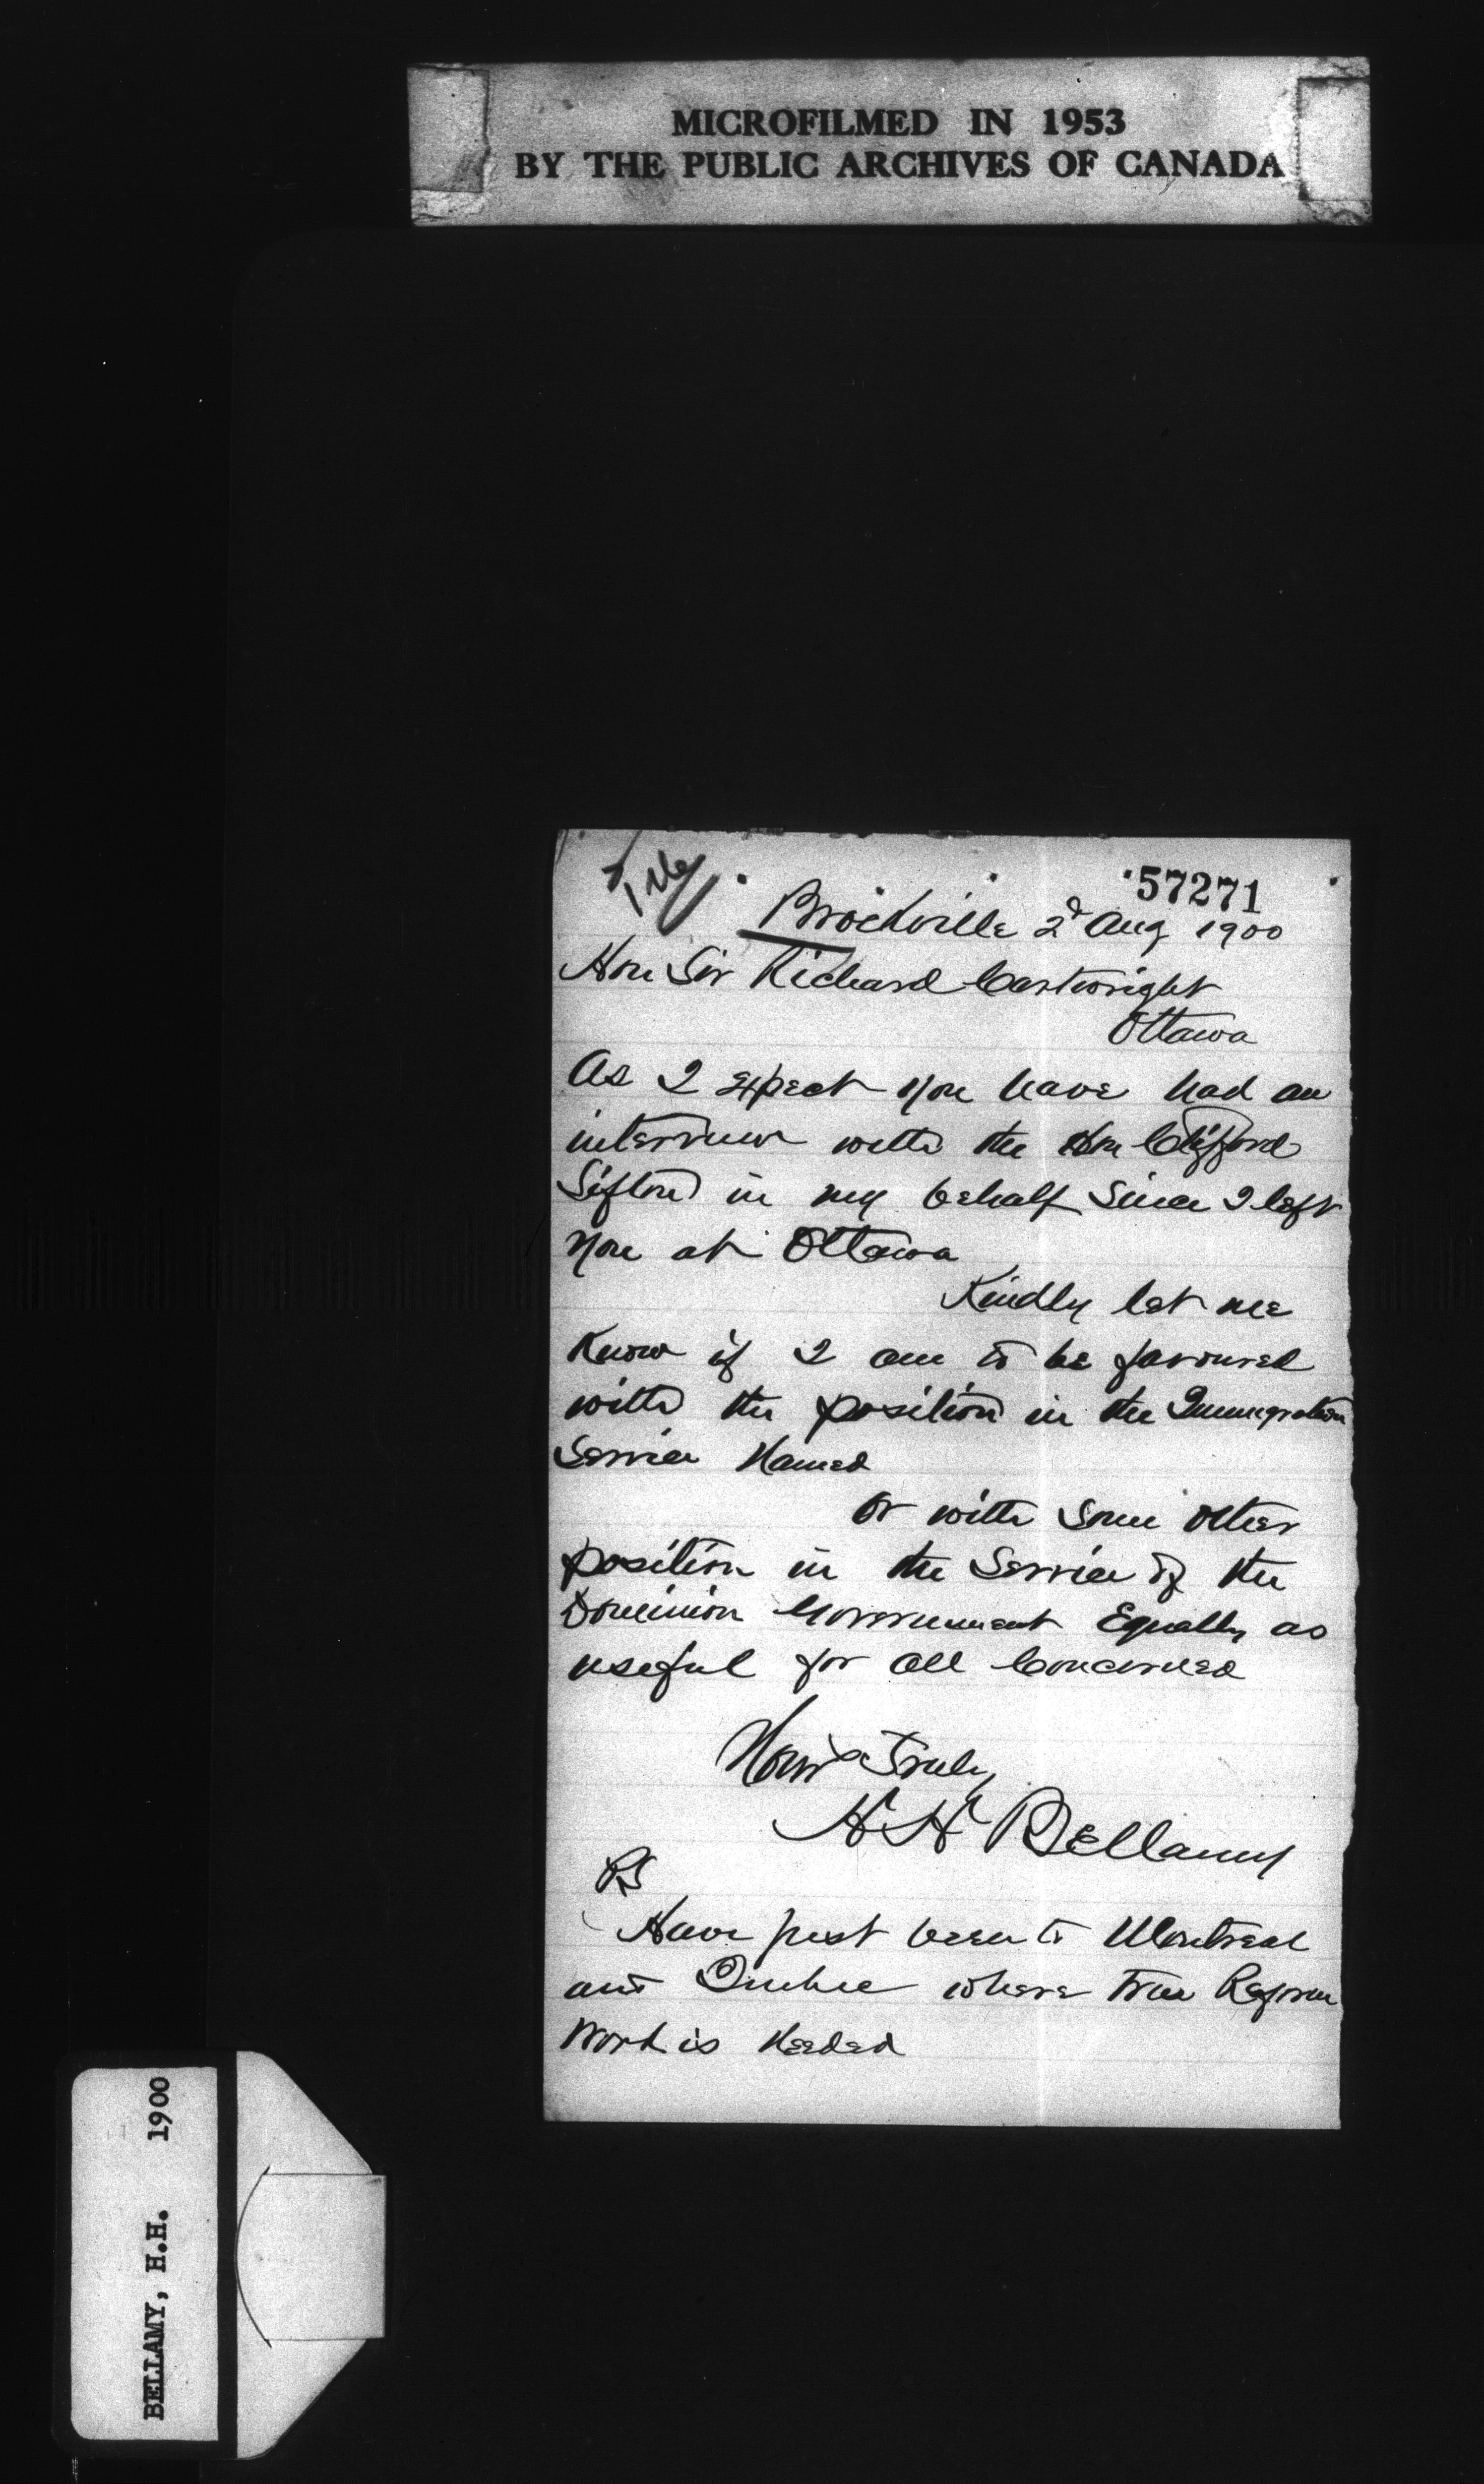 MICROFILMED IN 1953
BY THE PUBLIC ARCHIVES OF CANADA
57271
Brockville 2d Aug 1900
Hon Sir Richard Cartwright
Ottawa
As I expect you have had an
interview with the Hon Clifford
Sifton in my behalf Since I left
you at Ottawa
Kindly let me
Know if I am to be favoured
with the position in the Immigration
Service Named
Or with Some other
position in the Service of the
Dominion Government Equally as
useful for all Concerned
Yours Truly
H H Bellamy
PS
Have just been to Montreal
and Quebec where true Reform
Work is Needed
BELLAMY, H.H. 1900